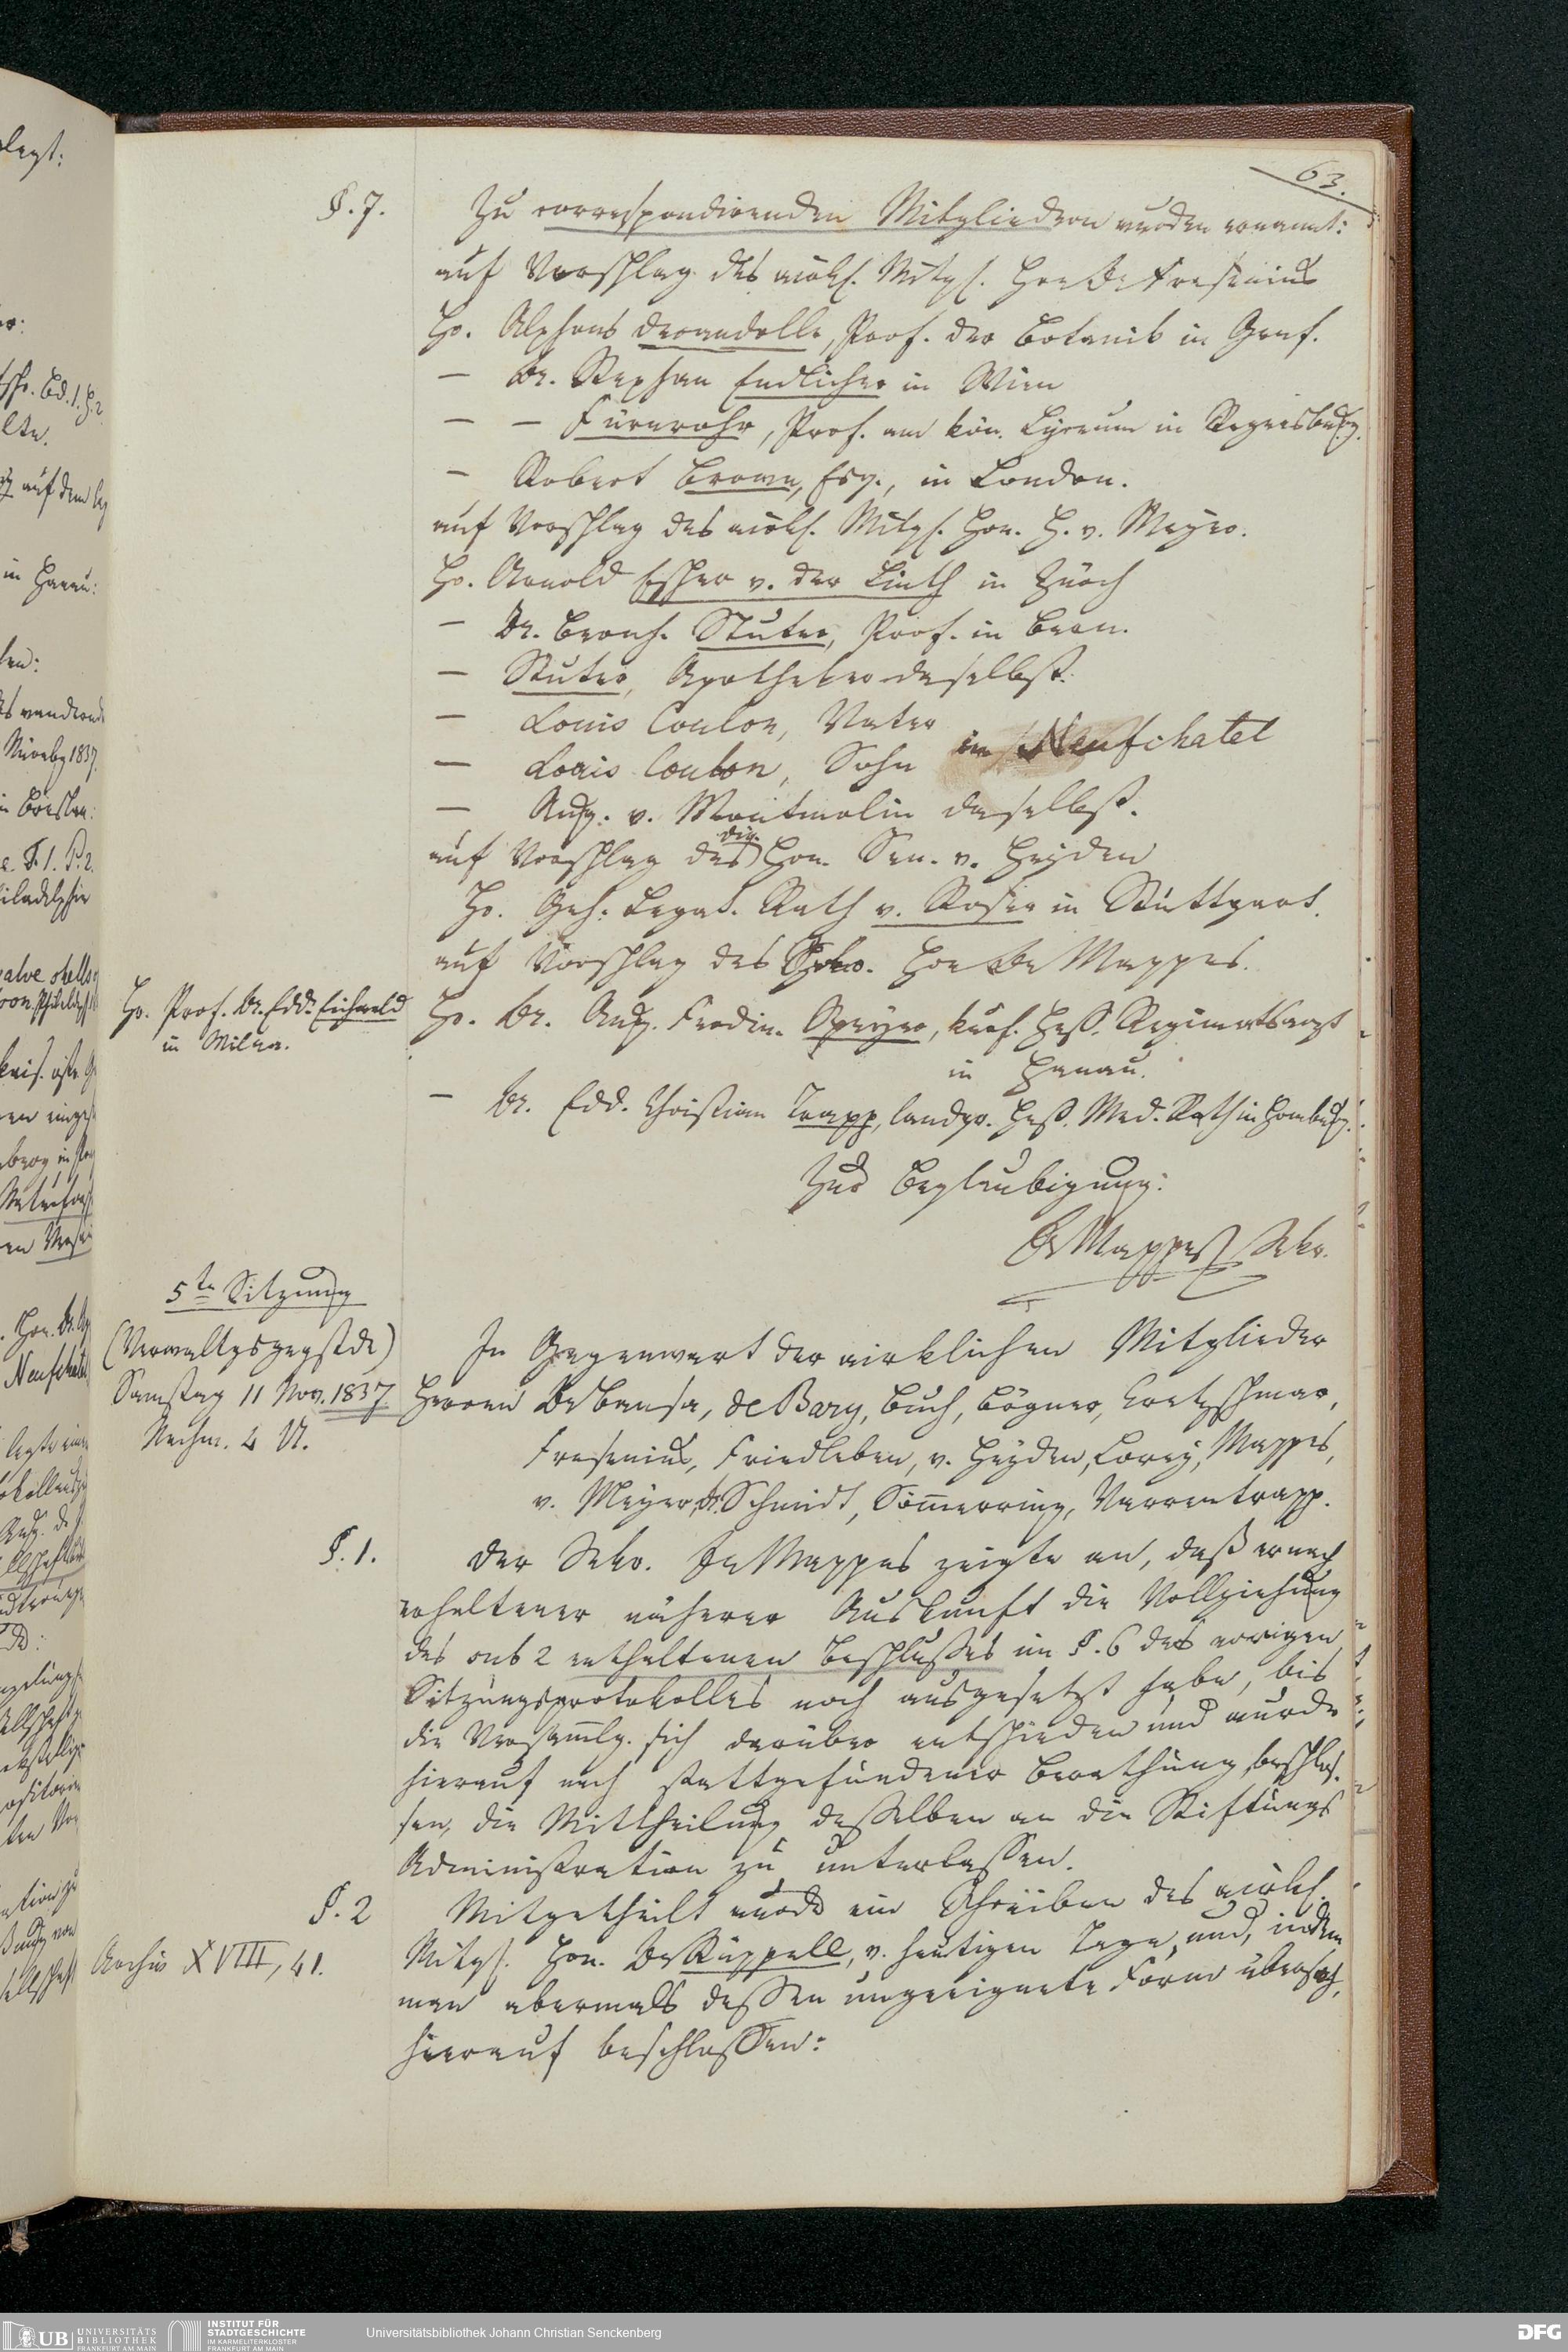 63.
§. 7.
Zu correspondirenden Mitgliedern wurden ernannt:
auf Vorschlag des wirkl. Mitgl. Hrn Dr Fresenius
Hr. Alphons Decandolle, Prof. der Botanik in Genf.
— Dr. Stephan Endlicher in Wien
— — Fürnrohr, Prof. am kön. Lyceum in Regensburg.
— Robert Brown, Esq., in London.
auf Vorschlag des wirkl. Mitgl. Hrn. H. v. Meyer.
Hr. Arnold Escher v. der Linth in Zürch
— Dr. Bernh. Studer, Prof. in Bern.
— Studer, Apotheker daselbst.
— Louis Coulon, Vater
— Louis Coulon, Sohn in Neufchatel
— Aug. v. Montmolin daselbst.
auf Vorschlag des Dir. Hrn. Sen. v. Heyden
Hr. Geh. Legat. Rath v. Roser in Stuttgart.
auf Vorschlag des Sekr. Hrn Dr Mappes.
Hr. Prof. Dr. Edd. Eichwald
in Wilna.
Hr. Dr. Aug. Ferdin. Speyer, kurf. Hess. Regimentsarzt
in Hanau.
— Dr. Edd. Christian Trapp, landgr. Hess. Med. Rath in Homburg.
Zur Beglaubigung:
Dr Mappes Sekr.
5te Sitzung
(Verwaltgsgegstde)
Samstag 11 Nov. 1837.
Nachm. 4 U.
In Gegenwart der wirklichen Mitglieder
Herren Dr Bansa, de Bary, Buch, Bögner, Cretzschmar,
Fresenius, Friedleben, v. Heyden, Lorey, Mappes,
v. Meyer, Dr. Schmidt, Sömmerring, Varrentrapp.
§. 1.
Der Sekr. Dr Mappes zeigte an, daß er nach
erhaltener näherer Auskunft die Vollziehung
des sub 2 enthaltenen Beschlußes im §. 6 des vorigen
Sitzungsprotokolles noch ausgesetzt habe, bis
die Versammlg. sich darüber entschieden und wurde
hierauf nach stattgefundener Berathung beschlos-
sen, die Mittheilung desselben an die Stiftungs
Administration zu unterlassen.
§. 2
Mitgetheilt wurde ein Schreiben des wirkl.
Archiv XVIII, 41.
Mitgl. Hrn. Dr Rüppell, v. heutigen Tage, und, indem
man abermals dessen ungeeignete Form übersah,
hierauf beschlossen:
UB UNIVERSITÄTS
BIBLIOTHEK
FRANKFURT AM MAIN
INSTITUT FÜR
STADTGESCHICHTE
IM KARMELITERKLOSTER
FRANKFURT AM MAIN
Universitätsbibliothek Johann Christian Senckenberg
DFG